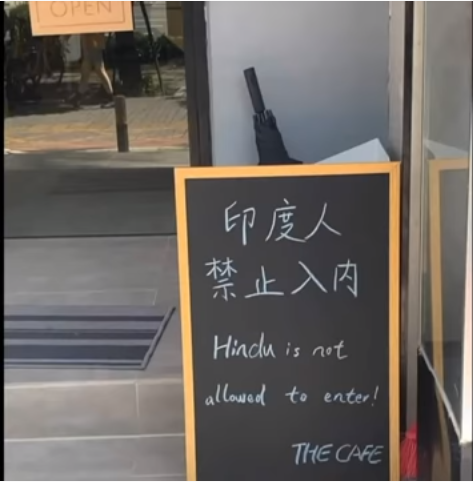 OPEN
印度人
禁止入内
Hindu is not
allowed to enter!
THE CAFE